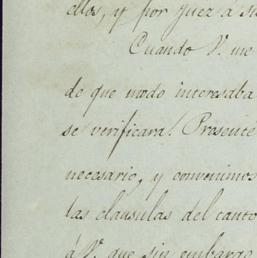 ellos, y por juez á
Cuando V. me
de que modo interesaba
se verificara! Presente
necesario, y convenimos
las clausulas del
á V. que sin embargo